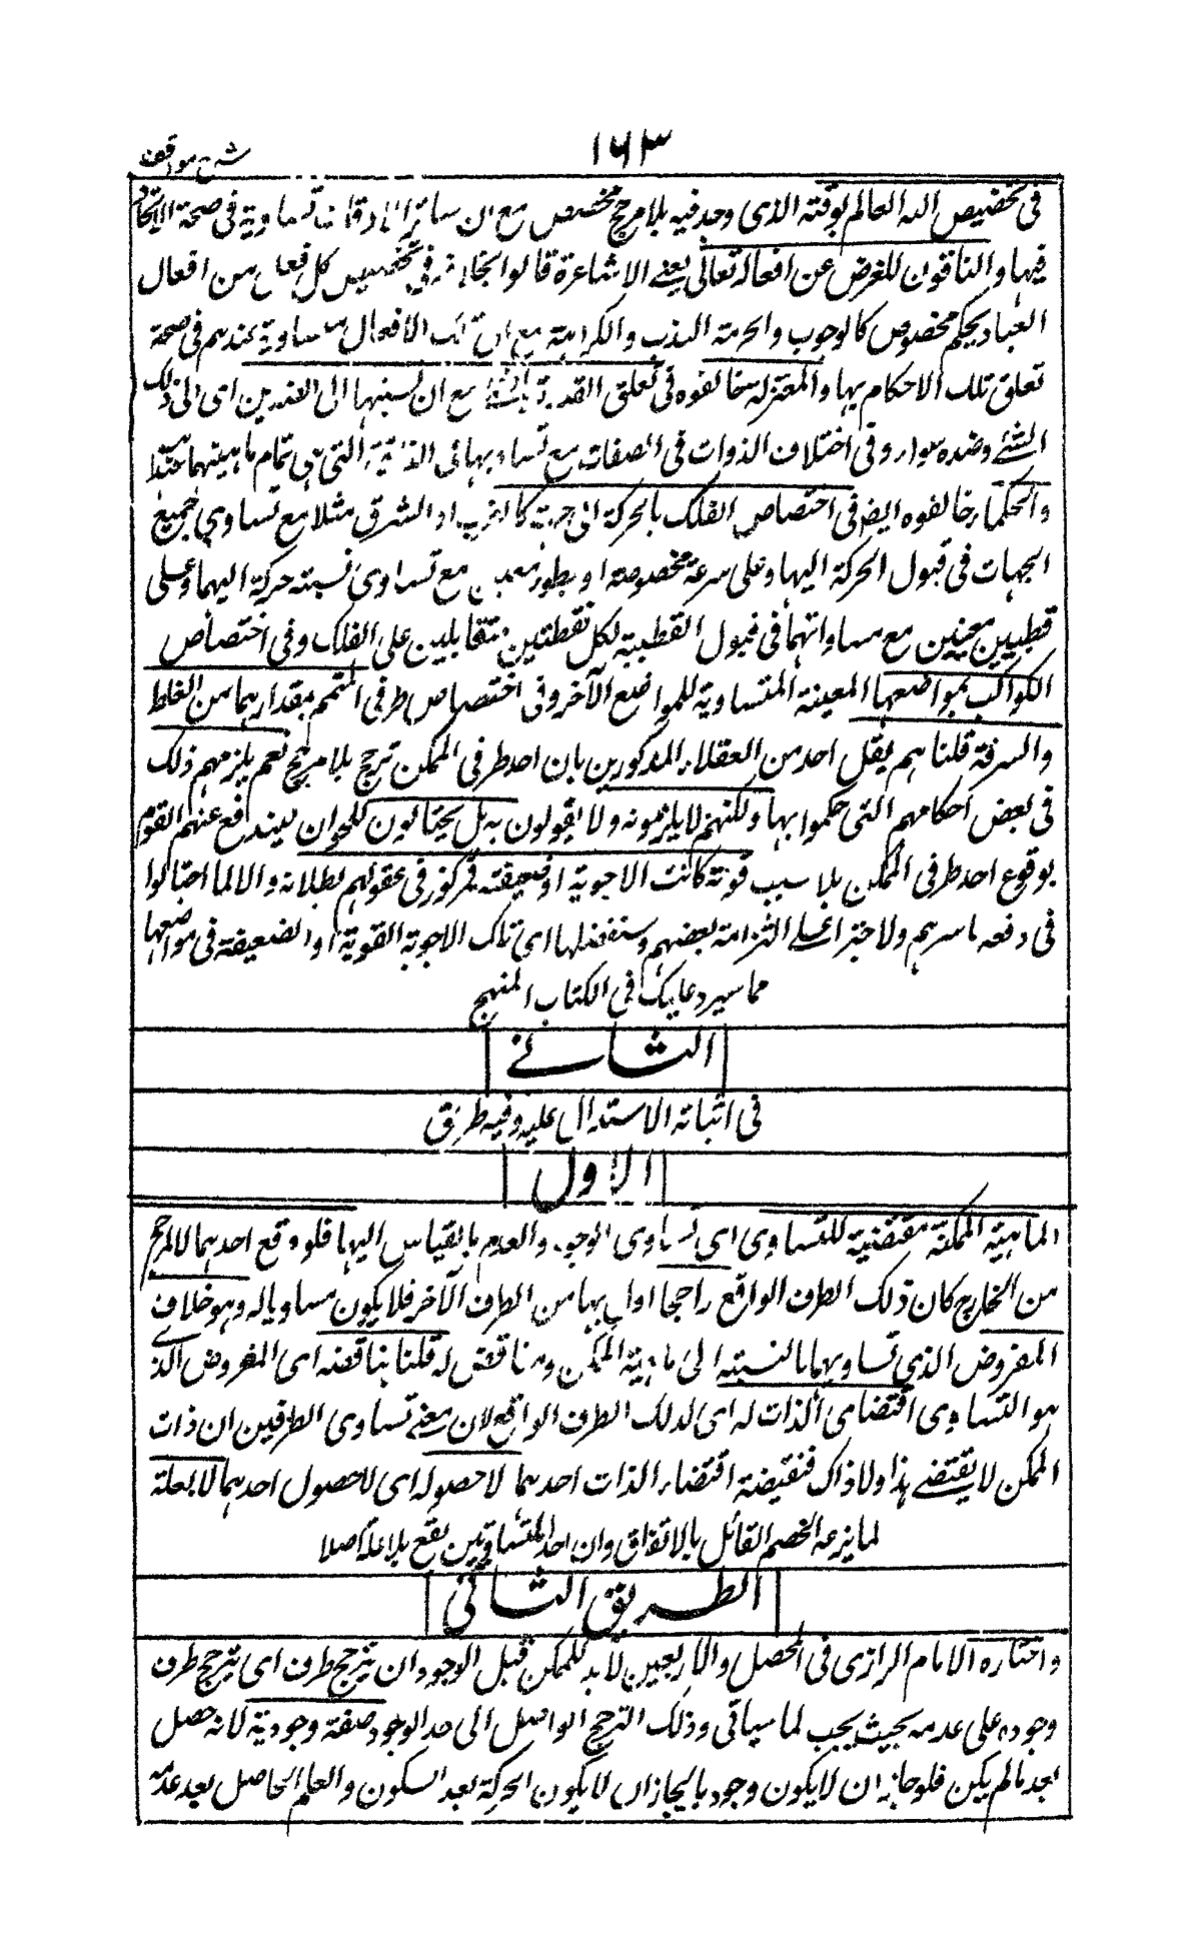 ١٦٣
شرح مواقف
فى تخصيص الله العالم بوقته الذى وجد فيه بلا مرجح مخصص مع ان سائر الاوقات متساوية فى صحة الايجاد
فيها والنافون للغرض عن افعاله تعالى يعنے الاشاعرة قالوا بخلافه فى تخصيص كل فعل من افعال
العباد بحكم مخصوص كالوجوب والحرمة الندب والكراهة مع ان تلك الافعال متساوية عندهم فى صحة
تعلق تلك الاحكام بها والمعتزلة خالفوه فى تعلق القدرة بالشئ مع ان نسبتها الى الضدين اى الى ذلك
الشئے وضده سواء وفى اختلاف الذوات فى الصفات مع تساويها فى الذاتية التى هى تمام ماهيتهما عندهم
والحكماء خالفوه ايضا فى اختصاص الفلك بالحركة الى جهة كالغرب او الشرق مثلا مع تساوى جميع
الجهات فى قبول الحركة اليها وعلى سرعة مخصوصة او بطوء معين مع تساوى نسبته حركة اليهما وعلى
قطبيين معينين مع مساواتهما فى قبول القطبية لكل نقطتين متقابلين على الفلك وفى اختصاص
الكواكب بمواضعها المعينة المتساوية للمواضع الآخر وفى اختصاص طرفى المتمم بمقدارهما من الغلظ
والرقة قلنا هم يقل احد من العقلاء المذكورين بان احد طرفى الممكن ترجح بلا مرجح نعم يلزمهم ذلك
فى بعض احكامهم التى حكموا بها ولكنهم لا يلزمونه ولا يقولون به بل يحتالون للجواب ليندفع عنهم القوم
بوقوع احد طرفى الممكن بلا سبب قوية كانت الاجوبة او ضعيفة فمركوز فى عقولهم بطلانه والا لما احتالوا
فى دفعه باسرهم ولاجترا على التزامه بعضهم وستفصلها اى تلك الاجوبة القوية او الضعيفة فى مواضعها
مما سيرد عليك فى الكتاب المنهج
الثانے
فى اثباته الاستدلال عليه وفيه طرق
الاول
الماهية الممكنة مقتضية للتساوى اى تساوى الوجود والعدم بالقياس اليها فلو وقع احدهما لا لمرجح
من الخارج كان ذلك الطرف الواقع راجحا اولى بها من الطرف الآخر فلا يكون مساويا له وهو خلاف
المفروض الذى تساويهما بالنسبة الى ماهية الممكن ومناقض له قلنا يناقضه اى المفروض الذے
هو التساوى اقتضاء الذات له اى لذلك الطرف الواقع لان معنے تساوى الطرفين ان ذات
الممكن لا يقتضے هذا ولا ذاك فنقيضه اقتضاء الذات احدهما لا حصوله اى لا حصول احدهما لا بعلة
لما يزعه الخصم القائل بالاتفاق وان احد المتساويين يقع بلا علة اصلا
الطريق الثانى
واختاره الامام الرازى فى المحصل والاربعين لا بد للممكن قبل الوجود ان يترجح طرف اى يترجح طرف
وجوده على عدمه بحيث يجب لما سيأتى وذلك الترجح الواصل الى حد الوجود صفة وجودية لانه حصل
بعد ما لم يكن فلو جاز ان لا يكون وجوديا لجاز ان لا يكون الحركة بعد السكون والعلم الحاصل بعد عدمه